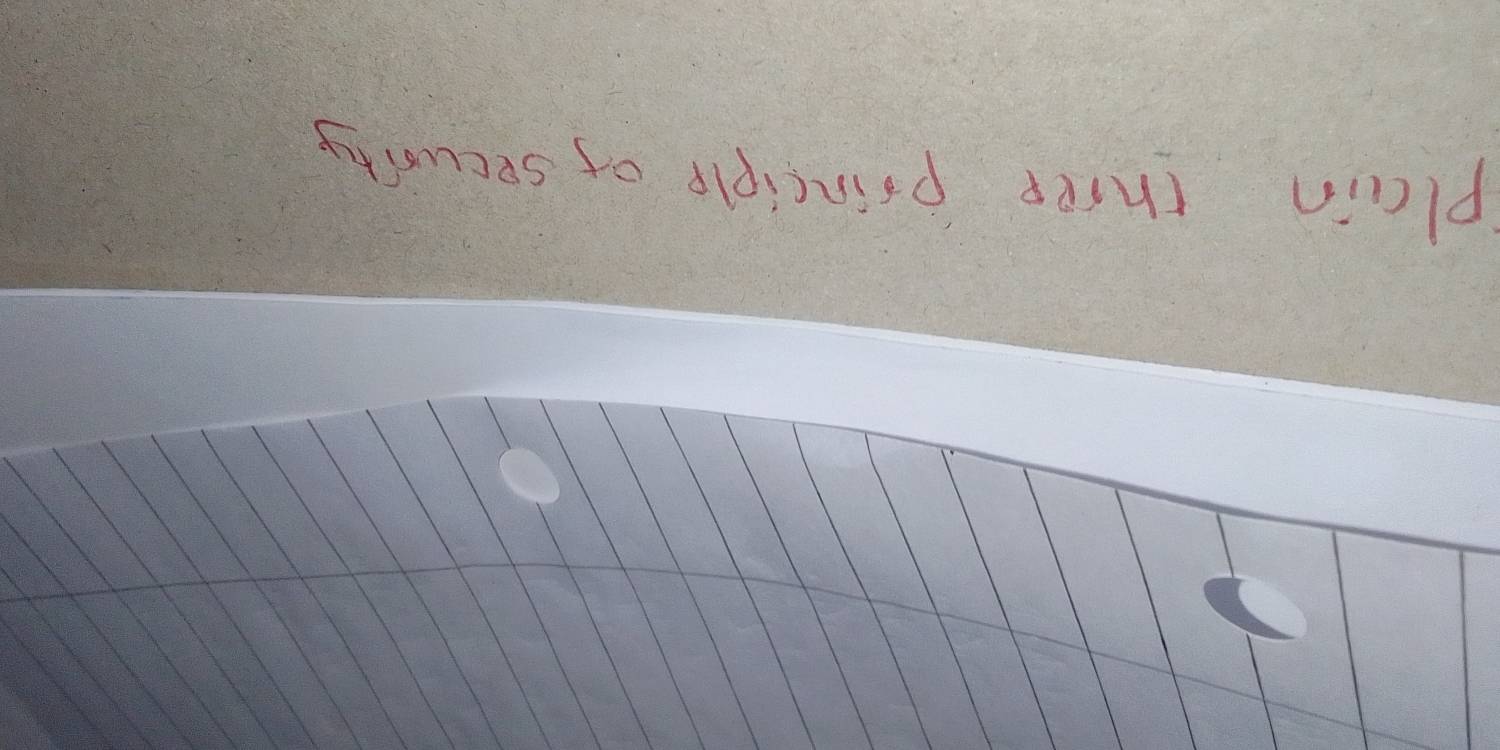 plain three principle of security